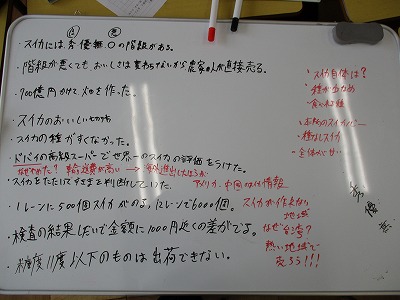 ・スイカには、秀優無〇の階級がある。
・階級が悪くてもおいしさは変わらないから農家の人が直接売る。
・700億円かけて畑を作った。
・スイカのおいしい切り方
・スイカの種がすくなかった。
・ドバイの高級スーパーで世界一のスイカの評価をうけた。
なぜやめた? 輸送費が高い →
・スイカをたたいてすきまを判断していた。
アメリカ、中国
情報
・1レーンに500個スイカがのる、12レーンで6000個。
・検査の結果しだいで金額に1000円近くの差がでる。
・糖度11度以下のものは出荷できない。
・スイカ自体は?
・種が少なめ
・食べれる種
・種なしスイカ
・全体が甘い
スイカが作れない
地域
なぜ台湾?
熱い地域で
売ろう!!!
秀 優